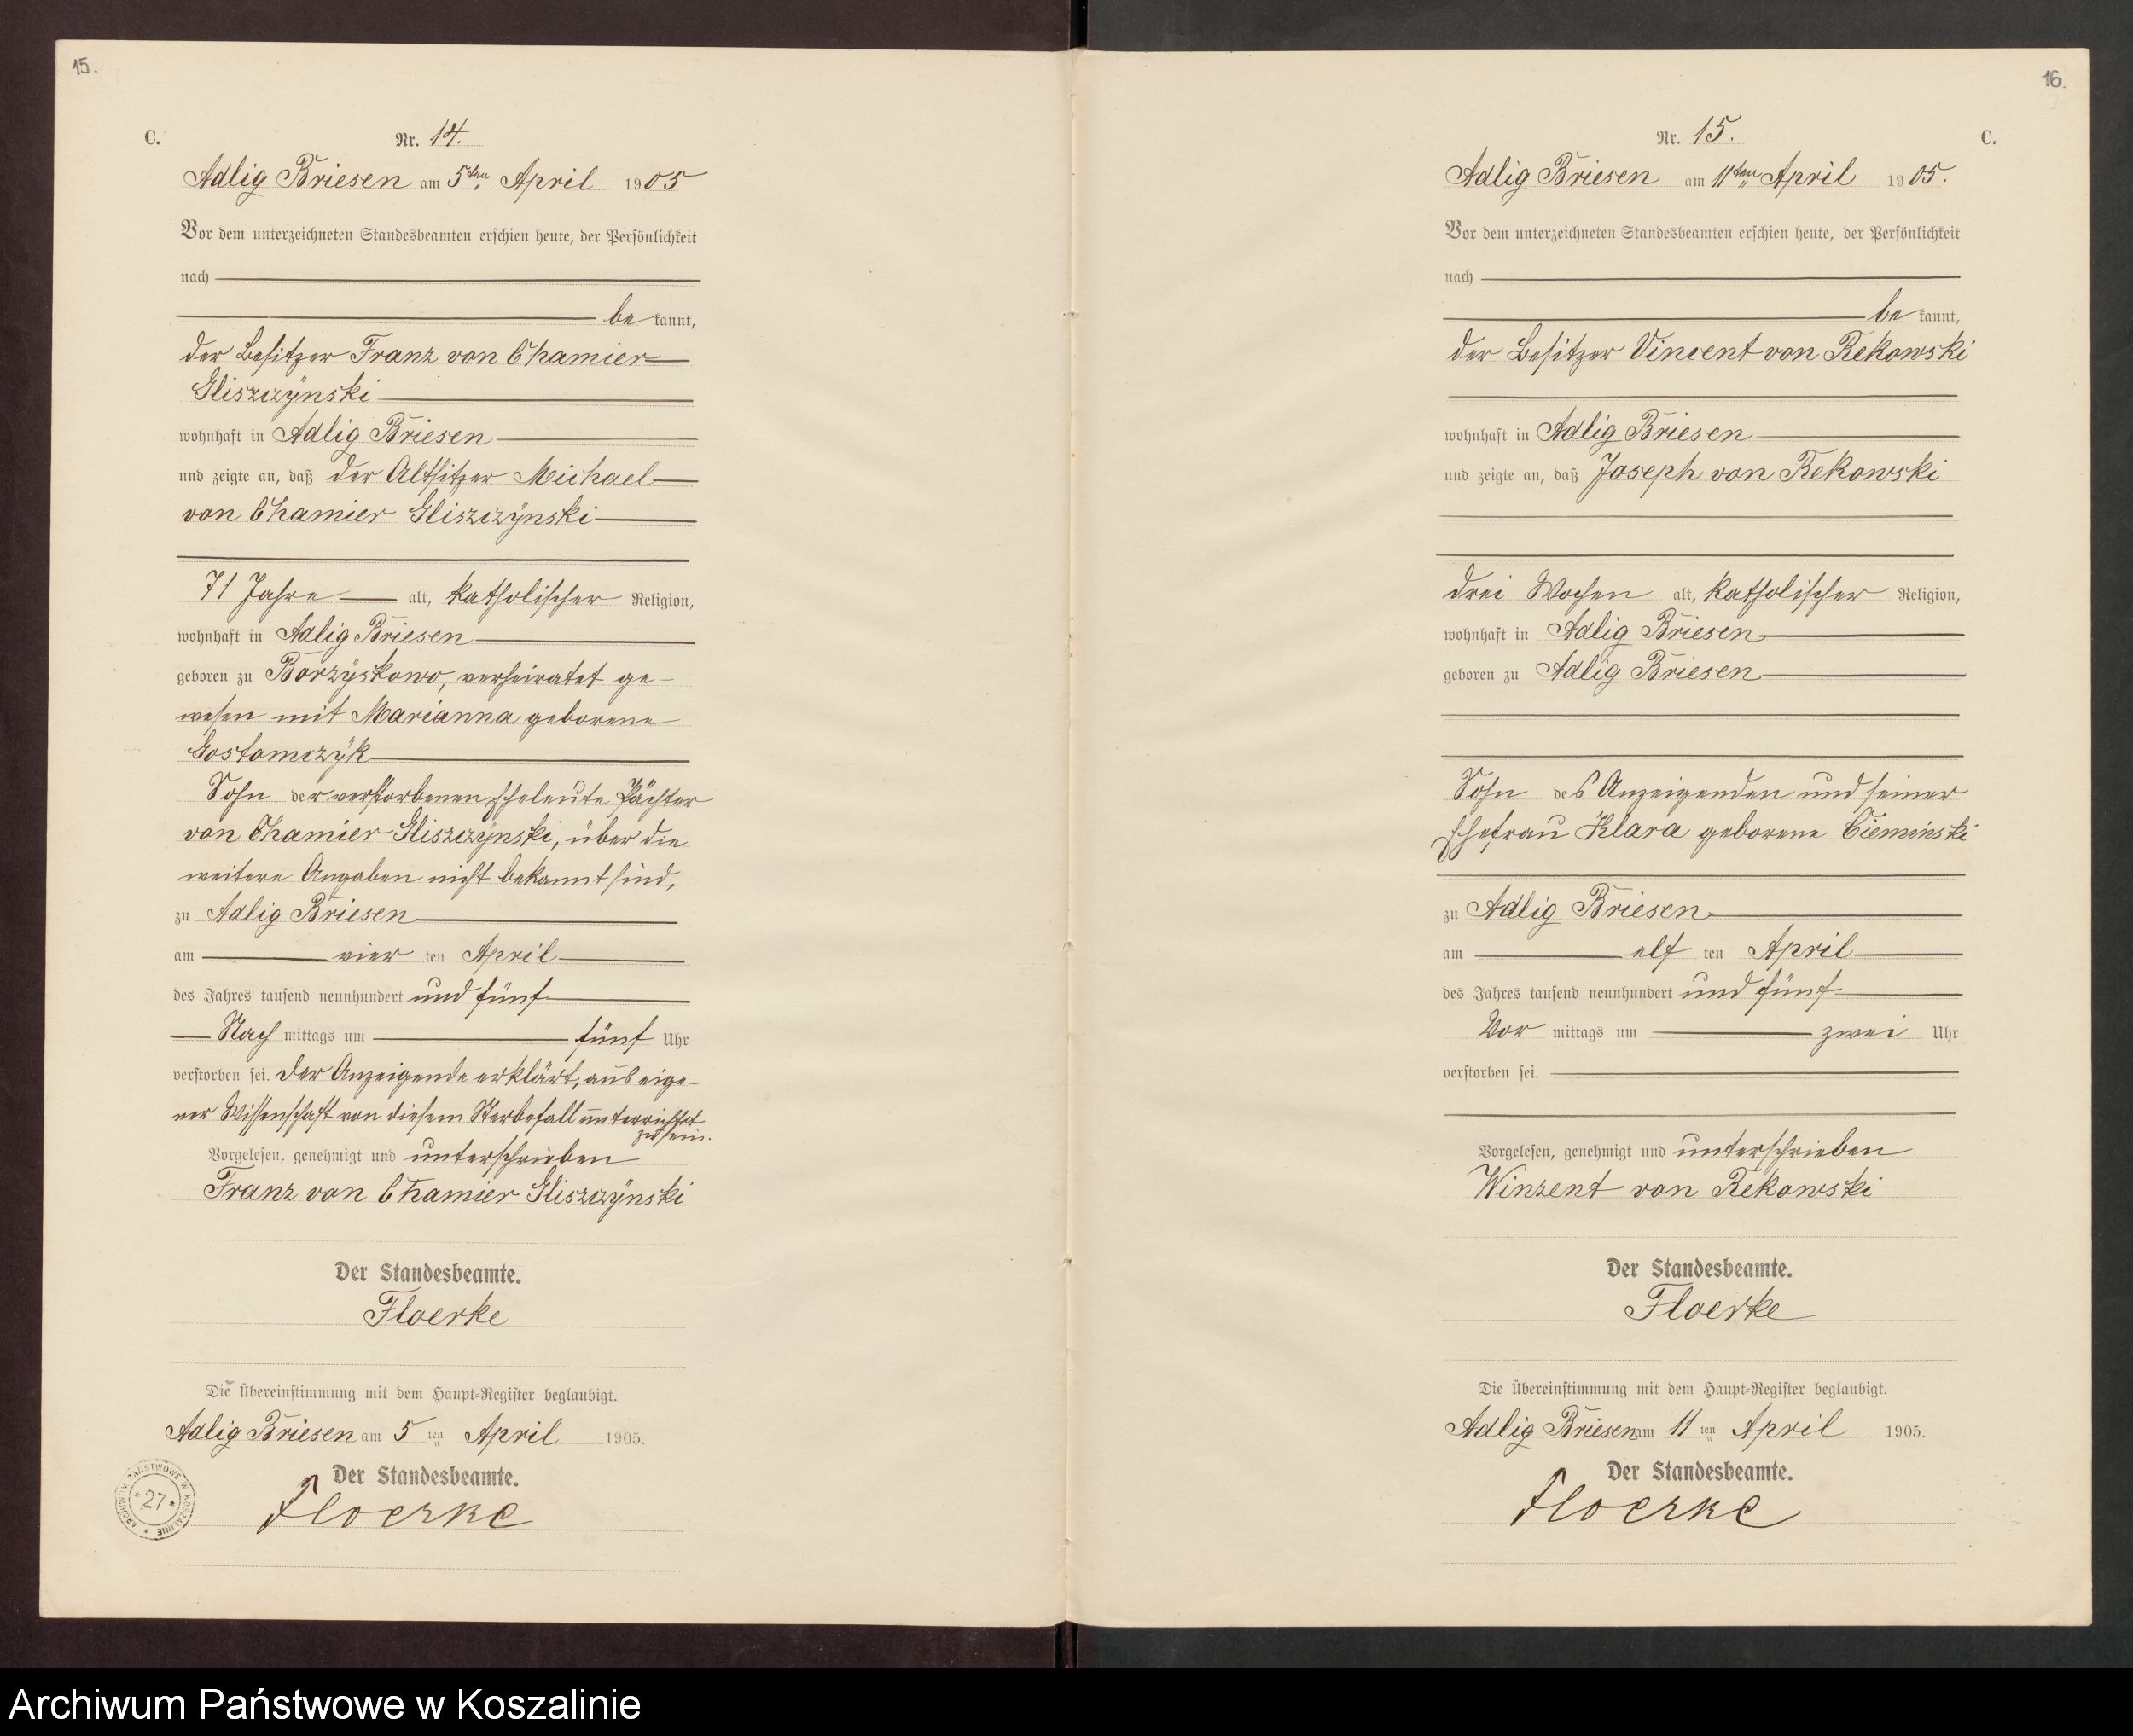 15.
C.
Nr. 14.
Adlig Briesen am 5ten April 1905
Vor dem unterzeichneten Standesbeamten erschien heute, der Persönlichkeit
nach
be kannt,
der Besitzer Franz von Chamier
Gliszczÿnski
wohnhaft in Adlig Briesen
und zeigte an, daß der Altsitzer Michael
von Chamier Gliszczÿnski
71 Jahre alt, katholischer Religion,
wohnhaft in Adlig Briesen
geboren zu Borzÿskowo, verheiratet ge-
wesen mit Marianna geborene
Gostomczÿk
Sohn der verstorbenen Eheleute Pächter
von Chamier Gliszczÿnski, über die
weitere Angaben nicht bekannt sind,
zu Adlig Briesen
am vier ten April
des Jahres tausend neunhundert und fünf
Nach mittags um fünf Uhr
verstorben sei. Der Anzeigende erklärt, aus eige-
ner Wissenschaft von diesem Sterbefall unterrichtet
zu sein.
Vorgelesen, genehmigt und unterschrieben
Franz von Chamier Gliszczÿnski
Der Standesbeamte.
Floerke
Die Übereinstimmung mit dem Haupt-Register beglaubigt.
Adlig Briesen am 5 ten April 1905.
Der Standesbeamte.
Floerke
ARCHIWUM PAŃSTWOWE W KOSZALINIE
* 27 *
16.
Nr. 15.
C.
Adlig Briesen am 11ten April 1905.
Vor dem unterzeichneten Standesbeamten erschien heute, der Persönlichkeit
nach
be kannt,
der Besitzer Vincent von Rekowski
wohnhaft in Adlig Briesen
und zeigte an, daß Joseph von Rekowski
drei Wochen alt, katholischer Religion,
wohnhaft in Adlig Briesen
geboren zu Adlig Briesen
Sohn des Anzeigenden und seiner
Ehefrau Klara geborene Cieminski
zu Adlig Briesen
am elf ten April
des Jahres tausend neunhundert und fünf
Vor mittags um zwei Uhr
verstorben sei.
Vorgelesen, genehmigt und unterschrieben
Winzent von Rekowski
Der Standesbeamte.
Floerke
Die Übereinstimmung mit dem Haupt-Register beglaubigt.
Adlig Briesen am 11 ten April 1905.
Der Standesbeamte.
Floerke
Archiwum Państwowe w Koszalinie